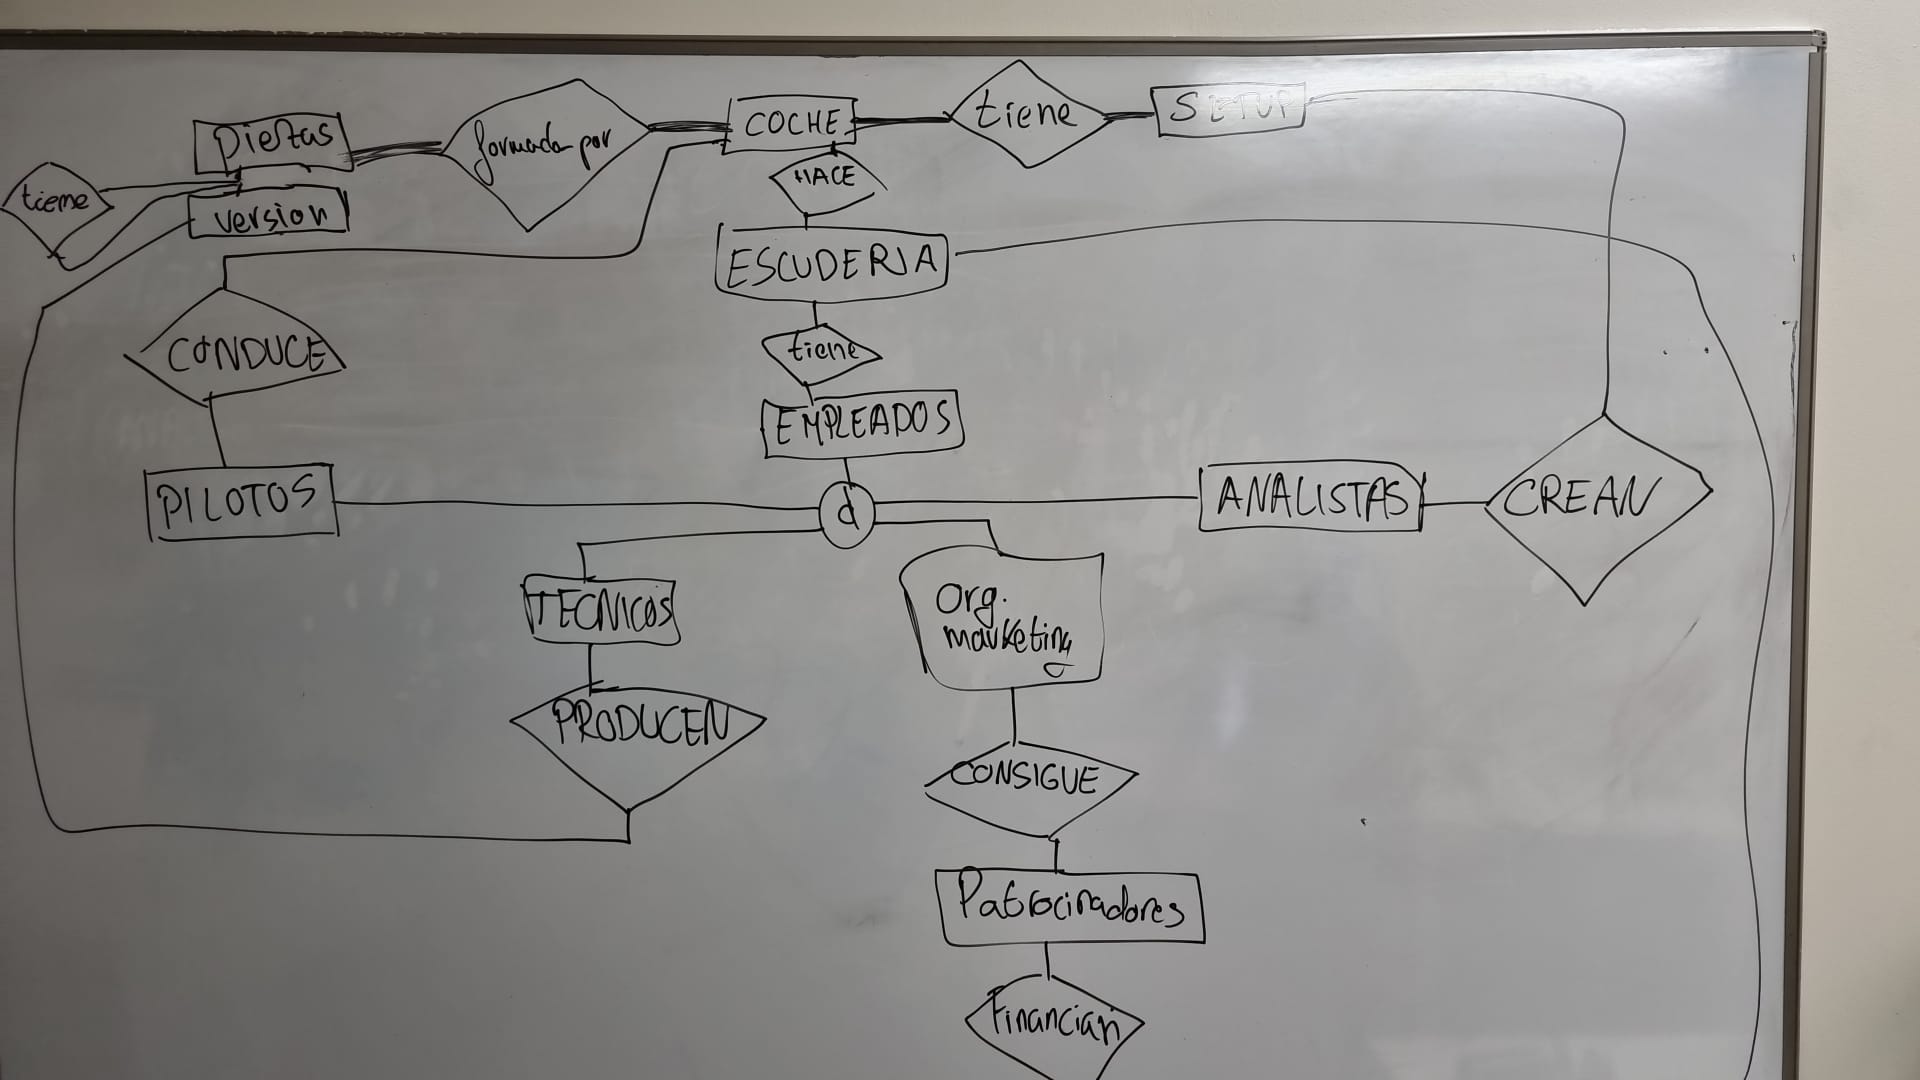 piezas
formado por
COCHE
tiene
SETUP
tiene
version
HACE
ESCUDERIA
CONDUCE
tiene
EMPLEADOS
PILOTOS
d
ANALISTAS
CREAN
TECNICOS
Org.
marketing
PRODUCEN
CONSIGUE
Patrocinadores
Financian